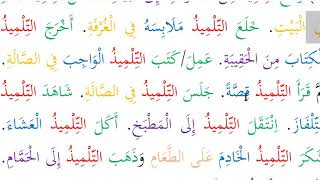 الْبَيْتِ. خَلَعَ التِّلْمِيذُ مَلَابِسَهُ فِي الْغُرْفَةِ. أَخْرَجَ التِّلْمِيذُ
الْكِتَابَ مِنَ الْحَقِيبَةِ. عَمِلَ/كَتَبَ التِّلْمِيذُ الْوَاجِبَ فِي الصَّالَةِ.
قَرَأَ التِّلْمِيذُ قِصَّةً. جَلَسَ التِّلْمِيذُ فِي الصَّالَةِ. شَاهَدَ التِّلْمِيذُ
التِّلْفَازَ. اِنْتَقَلَ التِّلْمِيذُ إِلَى الْمَطْبَخِ. أَكَلَ التِّلْمِيذُ الْعَشَاءَ.
شَكَرَ التِّلْمِيذُ الْخَادِمَ عَلَى الطَّعَامِ وَذَهَبَ التِّلْمِيذُ إِلَى الْحَمَّامِ.